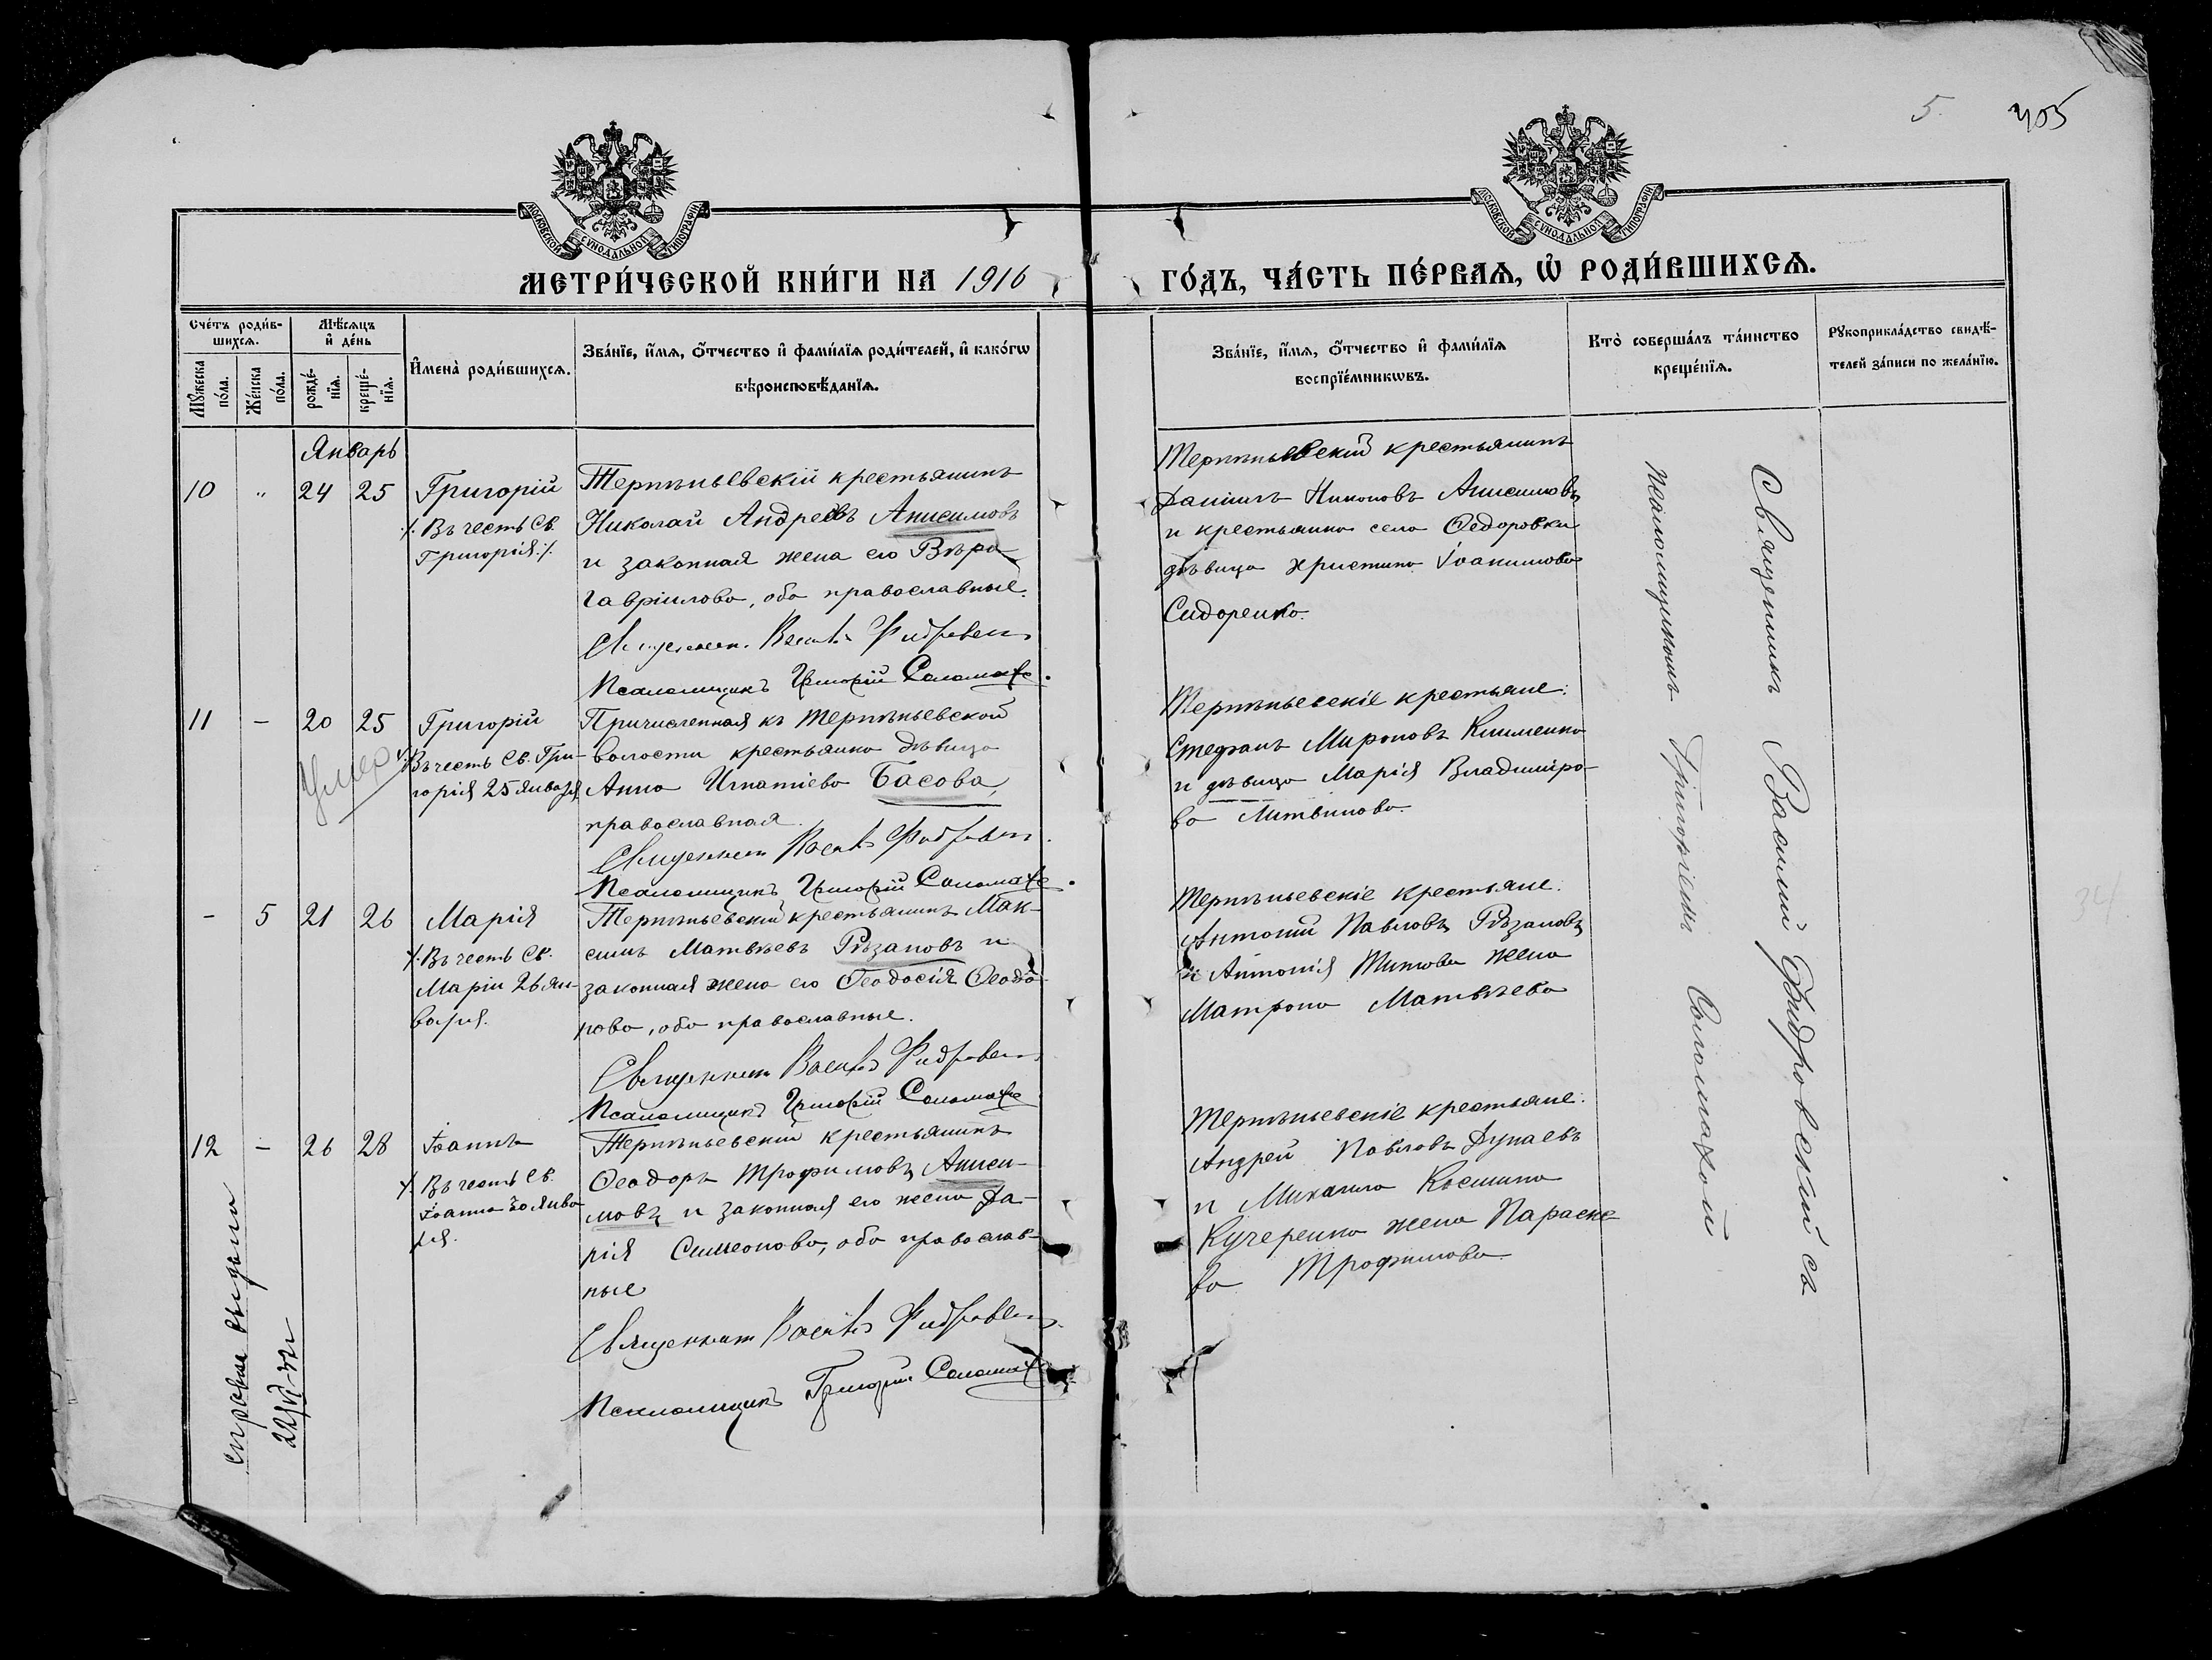 5.
405
МОСКОВСКОЙ СѴНОДАЛЬНОЙ ТИПОГРАФІИ
МОСКОВСКОЙ СѴНОДАЛЬНОЙ ТИПОГРАФІИ
МЕТРИ́ЧЕСКОЙ КНИ́ГИ НА 1916
ГО́ДЪ, ЧА́СТЬ ПЕ́РВАѦ, Ѽ РОДИ́ВШИХСѦ.
Сче́тъ роди́в-
шихсѧ.
Мꙋжеска
по́ла.
Же́нска
по́ла.
Мѣсѧцъ
и҆ де́нь
рожде́-
нїѧ.
креще́-
нїѧ.
И҆мена̀ роди́вшихсѧ.
Зва́нїе, и҆́мѧ, ѻ҆́тчество и҆ фами́лїѧ роди́телей, и҆ како́гѡ
вѣроисповѣ́данїѧ.
Зва́нїе, и҆́мѧ, ѻ҆́тчество и҆ фами́лїѧ
воспрїе́мникѡвъ.
Кто̀ соверша́лъ та́инство
креще́нїѧ.
Рꙋкоприкла́дство свидѣ́-
телей за́писи по жела́нїю.
Январь
10 " 24 25 Григорій
·/. Въ честь Св.
Григорія ·/.
Терпѣньевскій крестьянинъ
Николай Андреевъ Анисимовъ
и законная жена его Вѣра
Гавріилова, оба православные.
Священник Василій Фидровскій
Псаломщикъ Григорій Соломаха.
Терпѣньевскій крестьянинъ
Даніилъ Никоновъ Анисимовъ
и крестьянка села Ѳедоровки
дѣвица Христина Іоакимова
Сидоренко.
11 – 20 25 Григорій
Въ честь Св. Гри-
горія 25 января
Умер
Причисленная къ Терпѣньевской
волости крестьянка дѣвица
Анна Игнатіева Басова,
православная.
Священник Василій Фидровскій
Псаломщикъ Григорій Соломаха.
Терпѣньевскіе крестьяне:
Стефанъ Мироновъ Клименко
и дѣвица Марія Владиміро-
ва Литвинова.
– 5 21 26 Марія
·/. Въ честь Св.
Маріи 26 ян-
варя.
Терпѣньевскій крестьянинъ Мак-
симъ Матвѣевъ Рѣзановъ и
законная жена его Ѳеодосія Ѳеодо-
рова, оба православные.
Священник Василій Фидровскій
Псаломщикъ Григорій Соломаха
Терпѣньевскіе крестьяне:
Антоній Павловъ Рѣзановъ
и Антонія Титова жена
Матрона Матвѣева
12 – 26 28 Іоаннъ
·/. Въ честь Св.
Іоанна 30 янва-
ря.
Терпѣньевскій крестьянинъ
Ѳеодоръ Трофимовъ Аниси-
мовъ и законная его жена Да-
рія Симеонова, оба православ-
ные
Священник Василій Фидровскій
Псаломщикъ Григорій Соломаха
Терпѣньевскіе крестьяне:
Андрей Павловъ Дунаевъ
и Михаила Косьмина
Кучеренко жена Параске-
ва Трофимова.
Священникъ Василій Фидровскій съ
псаломщикомъ Григоріемъ Соломахой
справка выдана
34